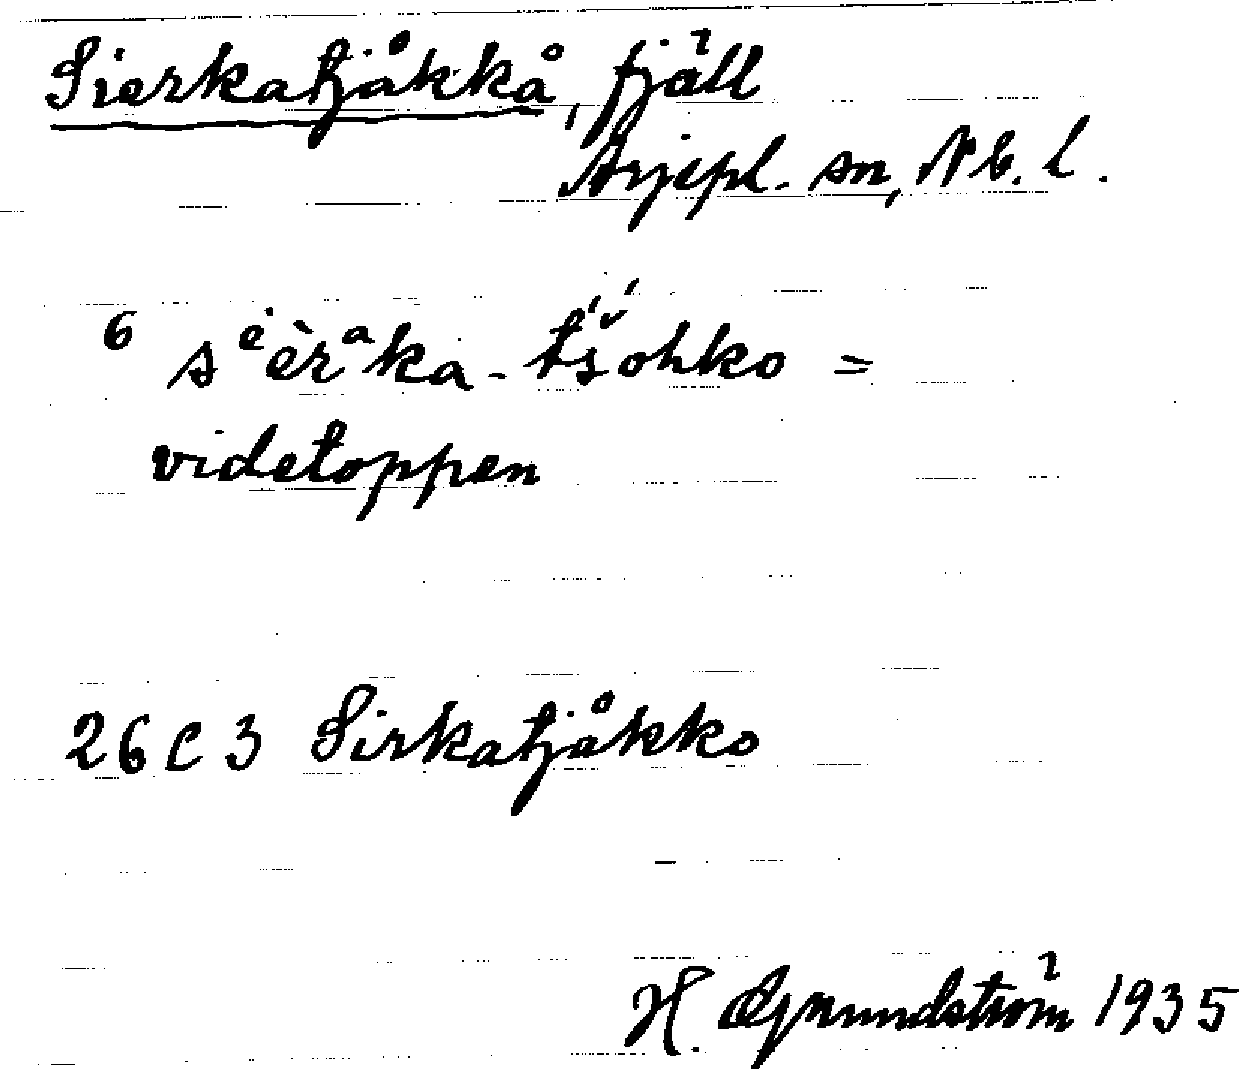 Sierkatjåkkå, fjäll
Arjepl. sn, Nb. l.
6 sᵉèrᵃka-tš́ohko =
videtoppen
26 C 3 Sirkatjåkko
H. Grundström 1935